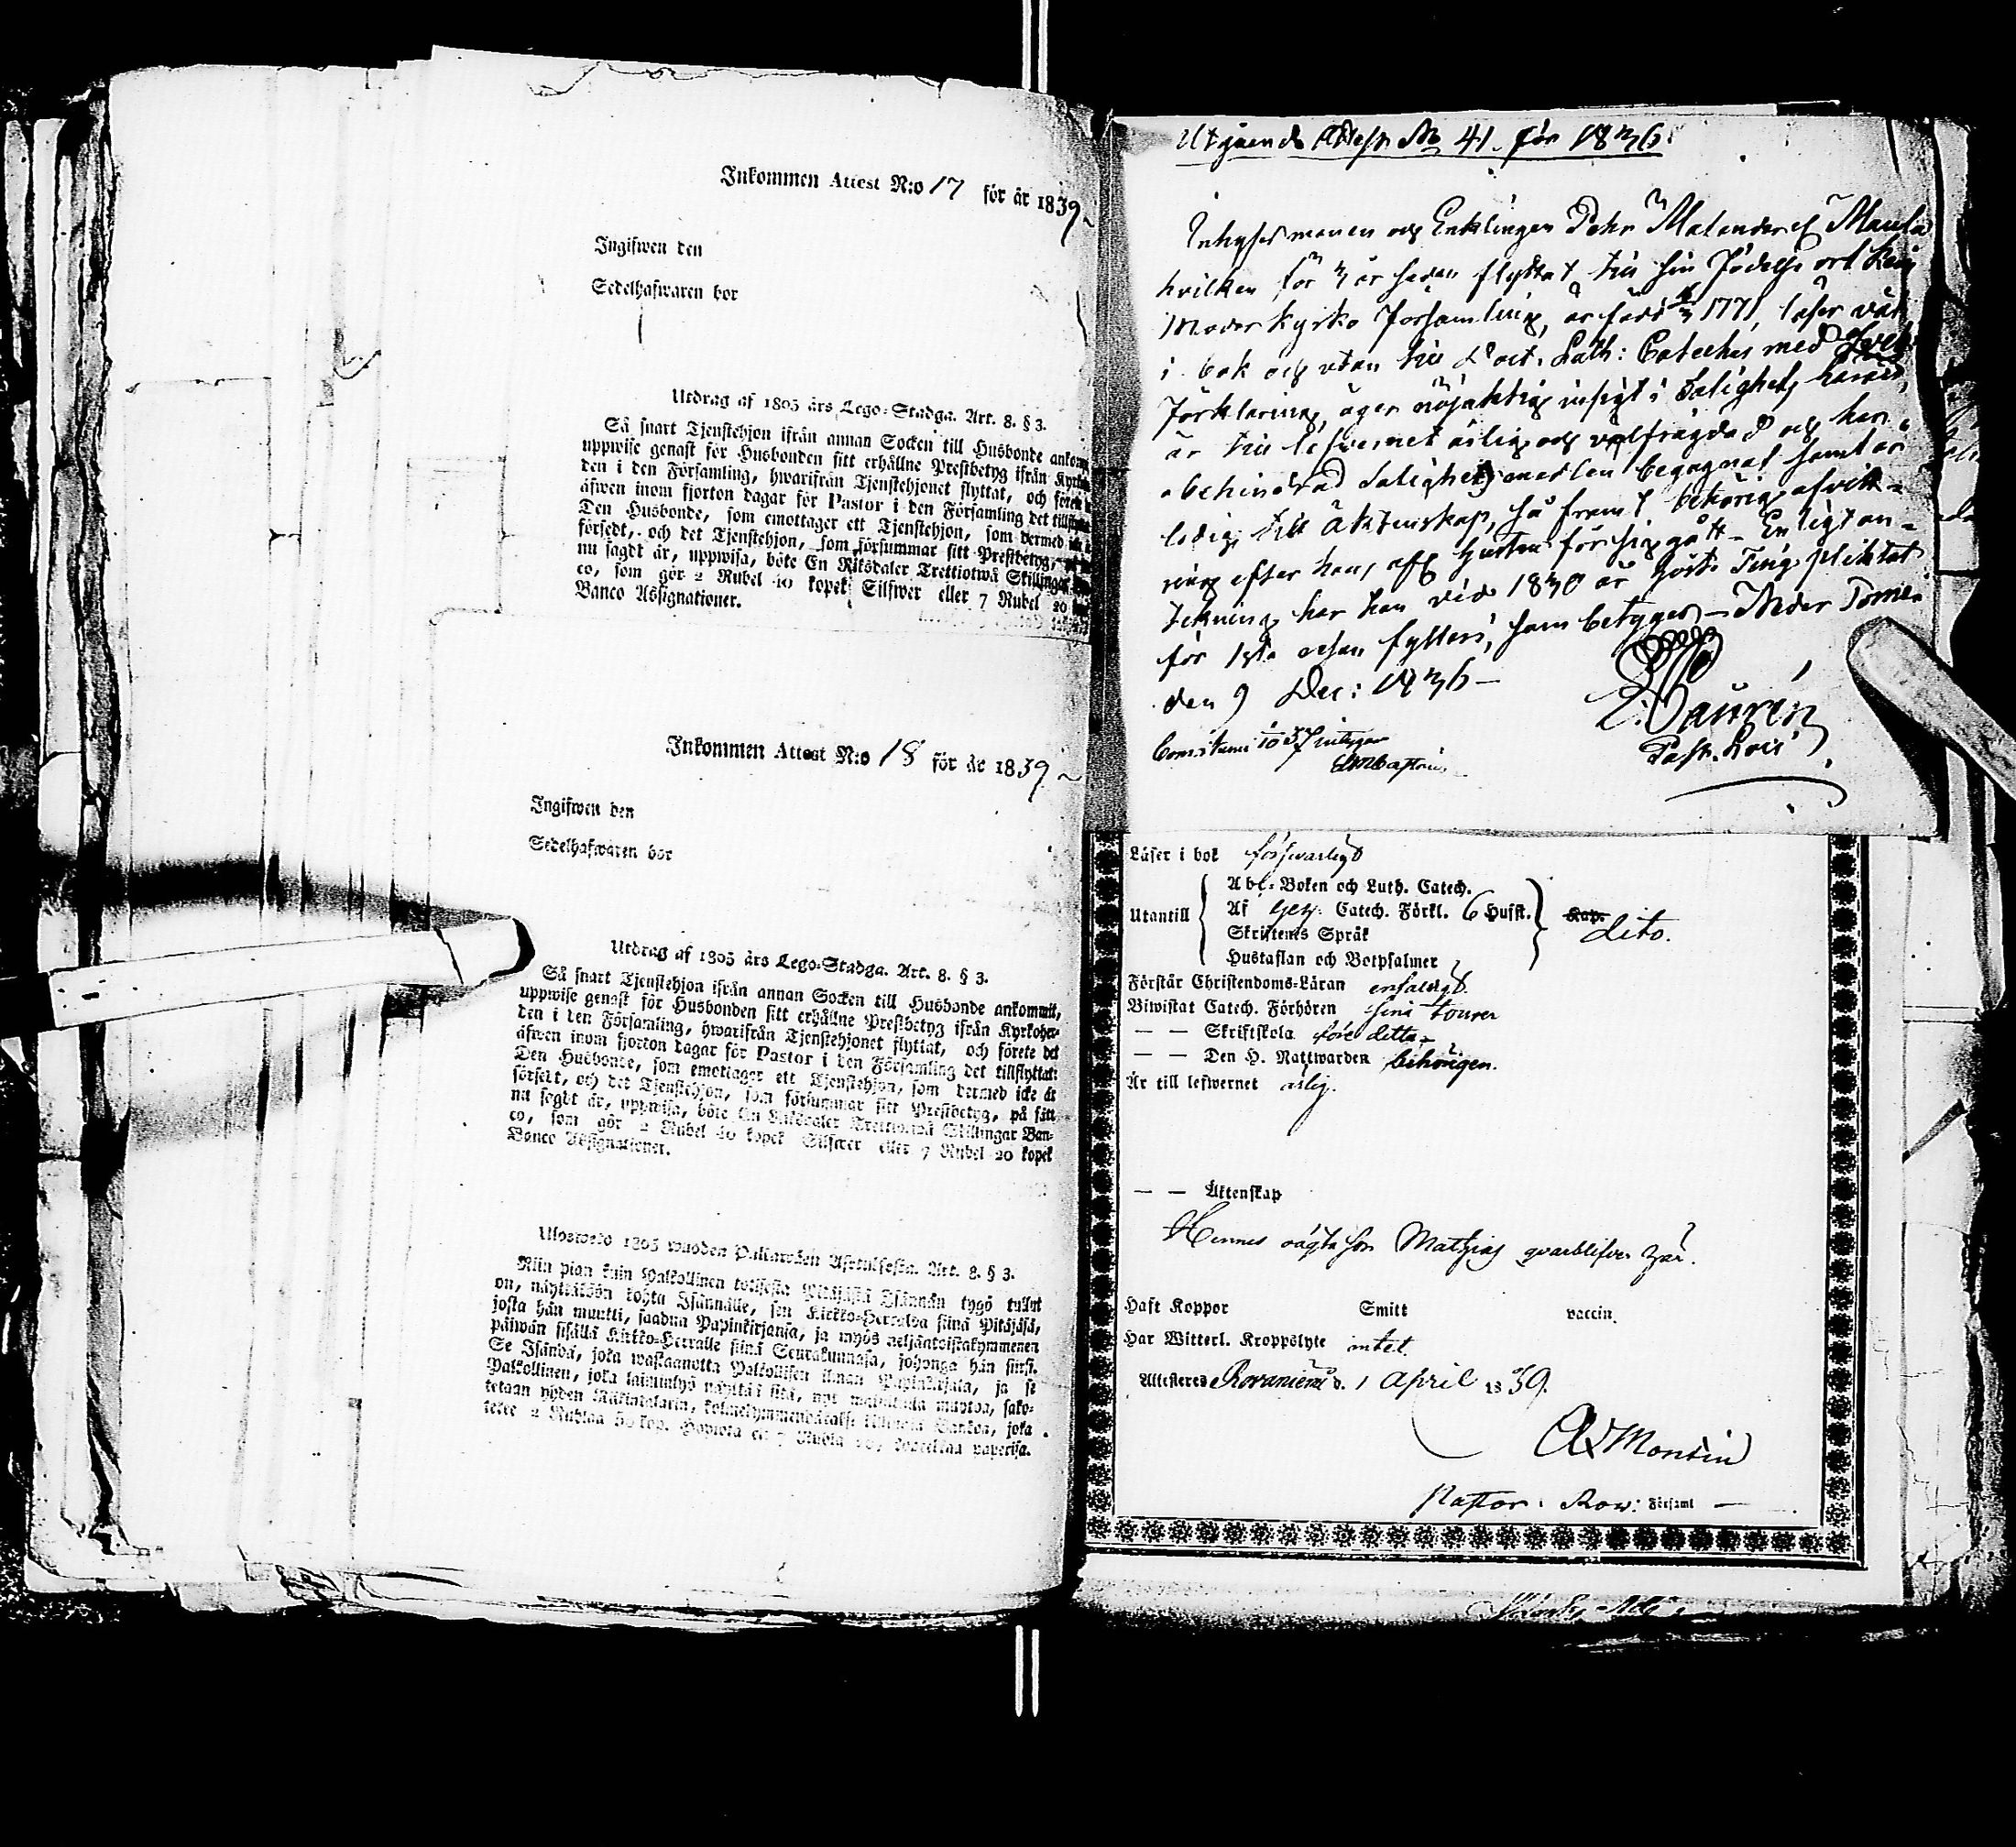 Inkommen Attest N:o 17 för år 1839
Ingifwen den
Sedelhafwaren bor
Utdrag af 1805 års Lego-Stadga. Art. 8. § 3.
Så snart Tjenstehjon ifrån annan Socken till Husbonde ankom
uppwise genast för Husbonden sitt erhållne Prestbetyg ifrån
den i den Församling, hwarifrån Tjenstehjonet flyttat, och
äfwen inom fjorton dagar för Pastor i den Församling det
Den Husbonde, som emottager ett Tjenstehjon, som dermed
försedt, och det Tjenstehjon, som försummar sitt Prestbetyg,
nu sagdt är, uppwisa, böte En Riksdaler Trettiotwå Skillingar
co, som gör 2 Rubel 40 kopek Silfwer eller 7 Rubel 20
Banco Assignationer.
Inkommen Attest N:o 18 för år 1839
Ingifwen den
Sedelhafwaren bor
Utdrag af 1805 års Lego-Stadga. Art. 8. § 3.
Så snart Tjenstehjon ifrån annan Socken till Husbonde ankommit,
uppwise genast för Husbonden sitt erhållne Prestbetyg ifrån Kyrkoher-
den i den Församling, hwarifrån Tjenstehjonet flyttat, och förete det
äfwen inom fjorton dagar för Pastor i den Församling det tillflyttat:
Den Husbonde, som emottager ett Tjenstehjon, som dermed icke är
försedt, och det Tjenstehjon, som försummar sitt Prestbetyg, på sätt
nu sagdt är, uppwisa, böte En Riksdaler Trettiotwå Skillingar Ban-
co, som gör 2 Rubel 40 kopek Silfwer eller 7 Rubel 20 kopek
Banco Assignationer.
1805 wuoden Palkawäen Art. 8. § 3.
Niin pian kuin Palkollinen toisesta Pitäjästä Isännän tygö tullut
on, näyttäköön kohta Isännälle, sen Kirkko-Herralda siinä Pitäjäsä,
josta hän muutti, saadun Papinkirjansa, ja myös neljäntoistakymmenen
päiwän sisällä Kirkko-Herralle siinä Seurakunnasa, johonga hän siirsi.
Se Isändä, joka wastaanotta Palkollisen ilman Papinkirjata, ja se
Palkollinen, joka laiminlyö näyttää sitä, nyt mainitulla muotoa, sako-
tetaan yhden Riikintalarin, joka
tekee 2 Ruplaa
Utgående Attest No 41. för 1836.
Inhyses mannen och Enklingen Pehr Malander
hvilken för 3 år sedan flyttat till sin födelse ort
Moder kyrko församling, är född 1771, läser väl
i bok och utan till Doct. Luth: Cateches med
förklaring, äger nöjaktig insigt i Salighets läran,
är till lefvernet ärlig och välfrägdad och har
obehindrad Salighets medlen begagnat samt är
ledig till Äktenskap, så framt behörig afvitt-
ring efter hans afl. hustru försiggått - Enligt an-
tekning har han vid 1830 års höste Ting pliktat
för 1sta resan fylleri, som betygas - Neder Torneå
den 9 Dec: 1836 -
Past. Loci
Läser i bok försvarligt
Utantill
Abc-Boken och Luth. Catech.
Af Catech. Förkl. 6 Hufst. Kap.
dito.
Skriftenes Språk
Hustaflan och Botpsalmer
Förstår Christendoms-Läran enfaldigt
Biwistat Catech. Förhören sina tourer
— — Skriftskola före detta
— — Den H. Nattwarden behörigen.
Är till lefwernet ärlig.
— — Äktenskap
Hennes oägta son Mathias qvarblifver här.
Haft Koppor Smitt vaccin.
Har Witterl. Kroppslyte intet
Attesteras Rovaniemi d. 1 April 1839.
Pastor: Row: Församl